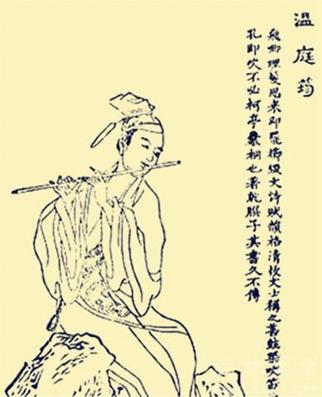 温庭筠
飛卿理髮思來即罷櫛綴文詩賦韻格清拔文士稱之善鼓琴吹笛
孔即吹不必柯亭爨桐也著乾𦠆子其書久不傳